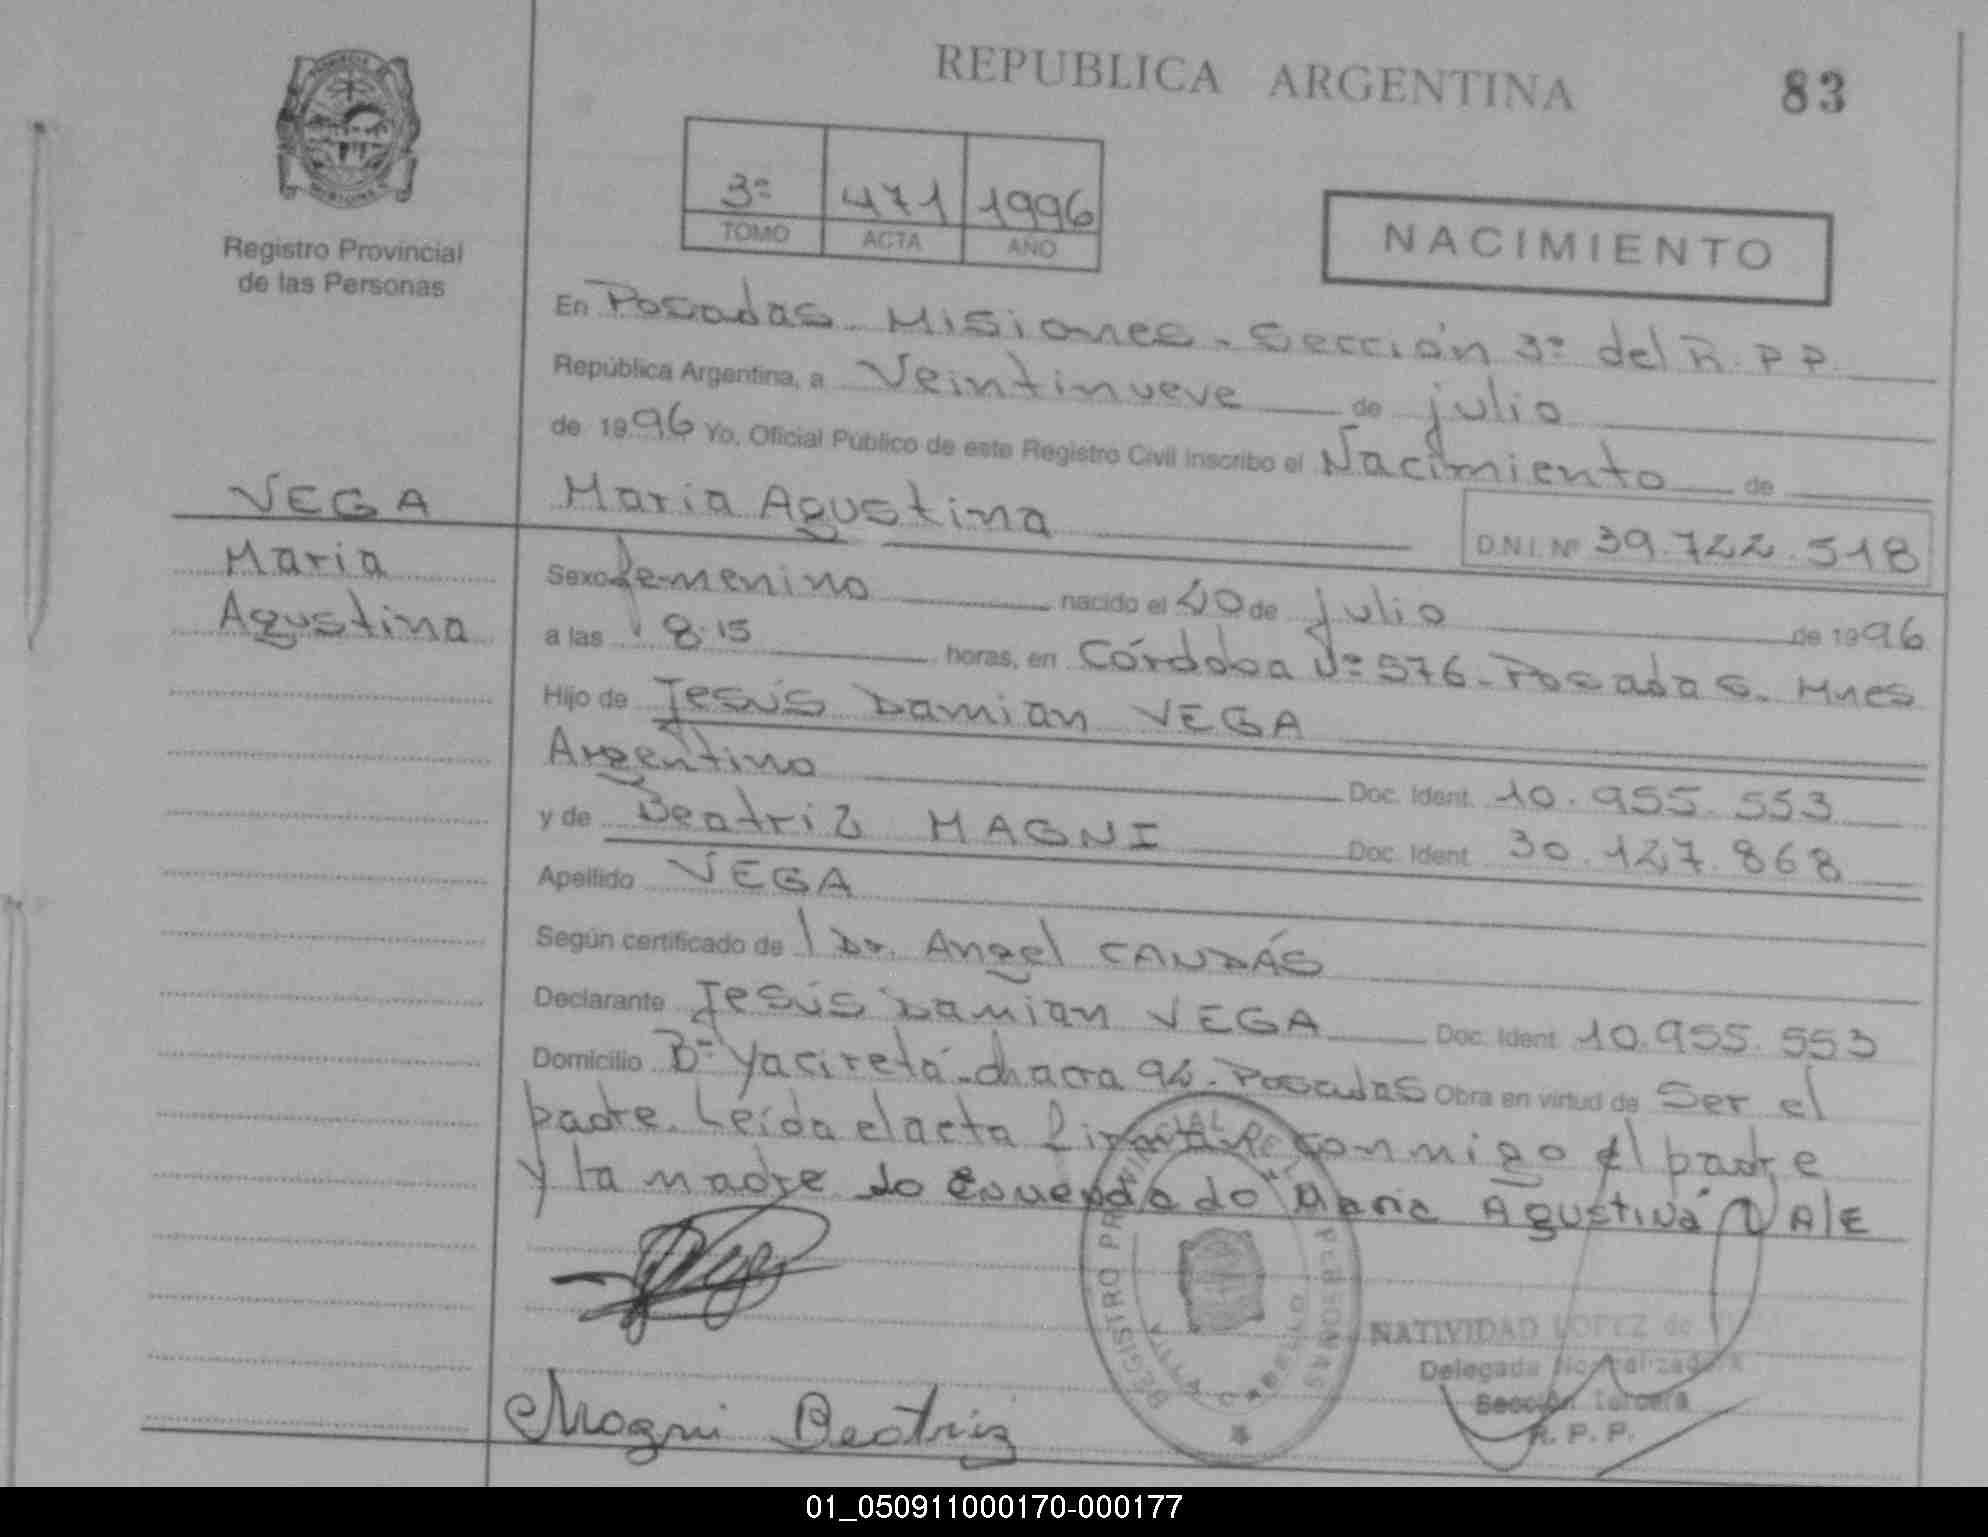 REPUBLICA ARGENTINA
83
3º 471 1996
TOMO ACTA AÑO
NACIMIENTO
Registro Provincial
de las Personas
En Posadas Misiones - Sección 3º del R.P.P.
República Argentina, a Veintinueve de julio
de 1996 Yo, Oficial Público de este Registro Civil inscribo el Nacimiento de
VEGA
Maria Agustina
D.N.I. Nº 39.722.518
Maria
Agustina
Sexo femenino nacido el de julio de 1996
a las 8:15 horas, en Córdoba Nº 576 - Posadas - Mnes
Hijo de Jesús Damian VEGA
Argentino Doc. Ident. 10.955.553
y de Beatriz MAGNI Doc. Ident. 30.127.868
Apellido VEGA
Según certificado de Dr. Angel CANDÁS
Declarante Jesús Damian VEGA Doc. Ident. 10.955.553
Domicilio Bº Yaciretá - chacra - Posadas Obra en virtud de Ser el
padre. Leída el acta conmigo el padre
y la madre So Enmendado "Maria Agustina" VALE
REGISTRO PROVINCIAL DE PERSONAS
NATIVIDAD LOPEZ de
Delegada Normalizadora
Sección Tercera
R. P. P.
Magni Beatriz
01_050911000170-000177